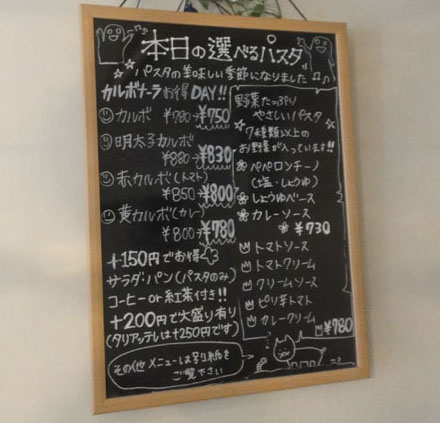 本日の選べるパスタ
パスタの美味しい季節になりました
カルボナーラお得DAY!!
カルボ ¥780→¥750
明太子カルボ
¥880→¥830
赤カルボ(トマト)
¥850→¥800
黄カルボ(カレー)
¥800→¥780
+150円でお得
サラダ・パン(パスタのみ)
コーヒー or 紅茶付き!!
+200円で大盛り有り
(タリアッテレは+250円です)
その他メニューは別紙を
ご覧下さい
野菜たっぷり
やさしいパスタ
7種類以上の
お野菜が入っています!!
ペペロンチーノ
(塩・しょうゆ)
しょうゆベース
カレーソース
¥730
トマトソース
トマトクリーム
クリームソース
ピリ辛トマト
カレークリーム
¥780